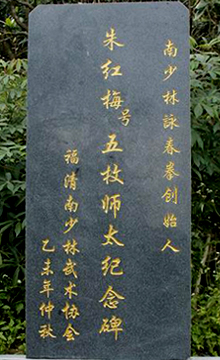 南少林詠春拳创始人
朱红梅号五枚师太纪念碑
福清南少林武术协会
乙未年仲秋